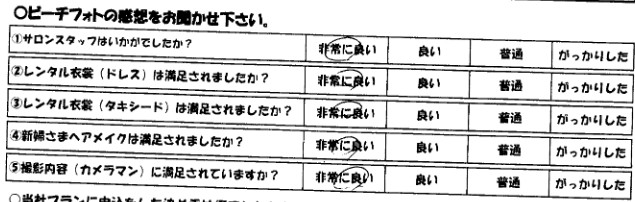 ○ビーチフォトの感想をお聞かせ下さい。
①サロンスタッフはいかがでしたか? 非常に良い 良い 普通 がっかりした
②レンタル衣裳(ドレス)は満足されましたか? 非常に良い 良い 普通 がっかりした
③レンタル衣裳(タキシード)は満足されましたか? 非常に良い 良い 普通 がっかりした
④新婦さまヘアメイクは満足されましたか? 非常に良い 良い 普通 がっかりした
⑤撮影内容(カメラマン)に満足されていますか? 非常に良い 良い 普通 がっかりした
○当社プランに申込をした決め手は